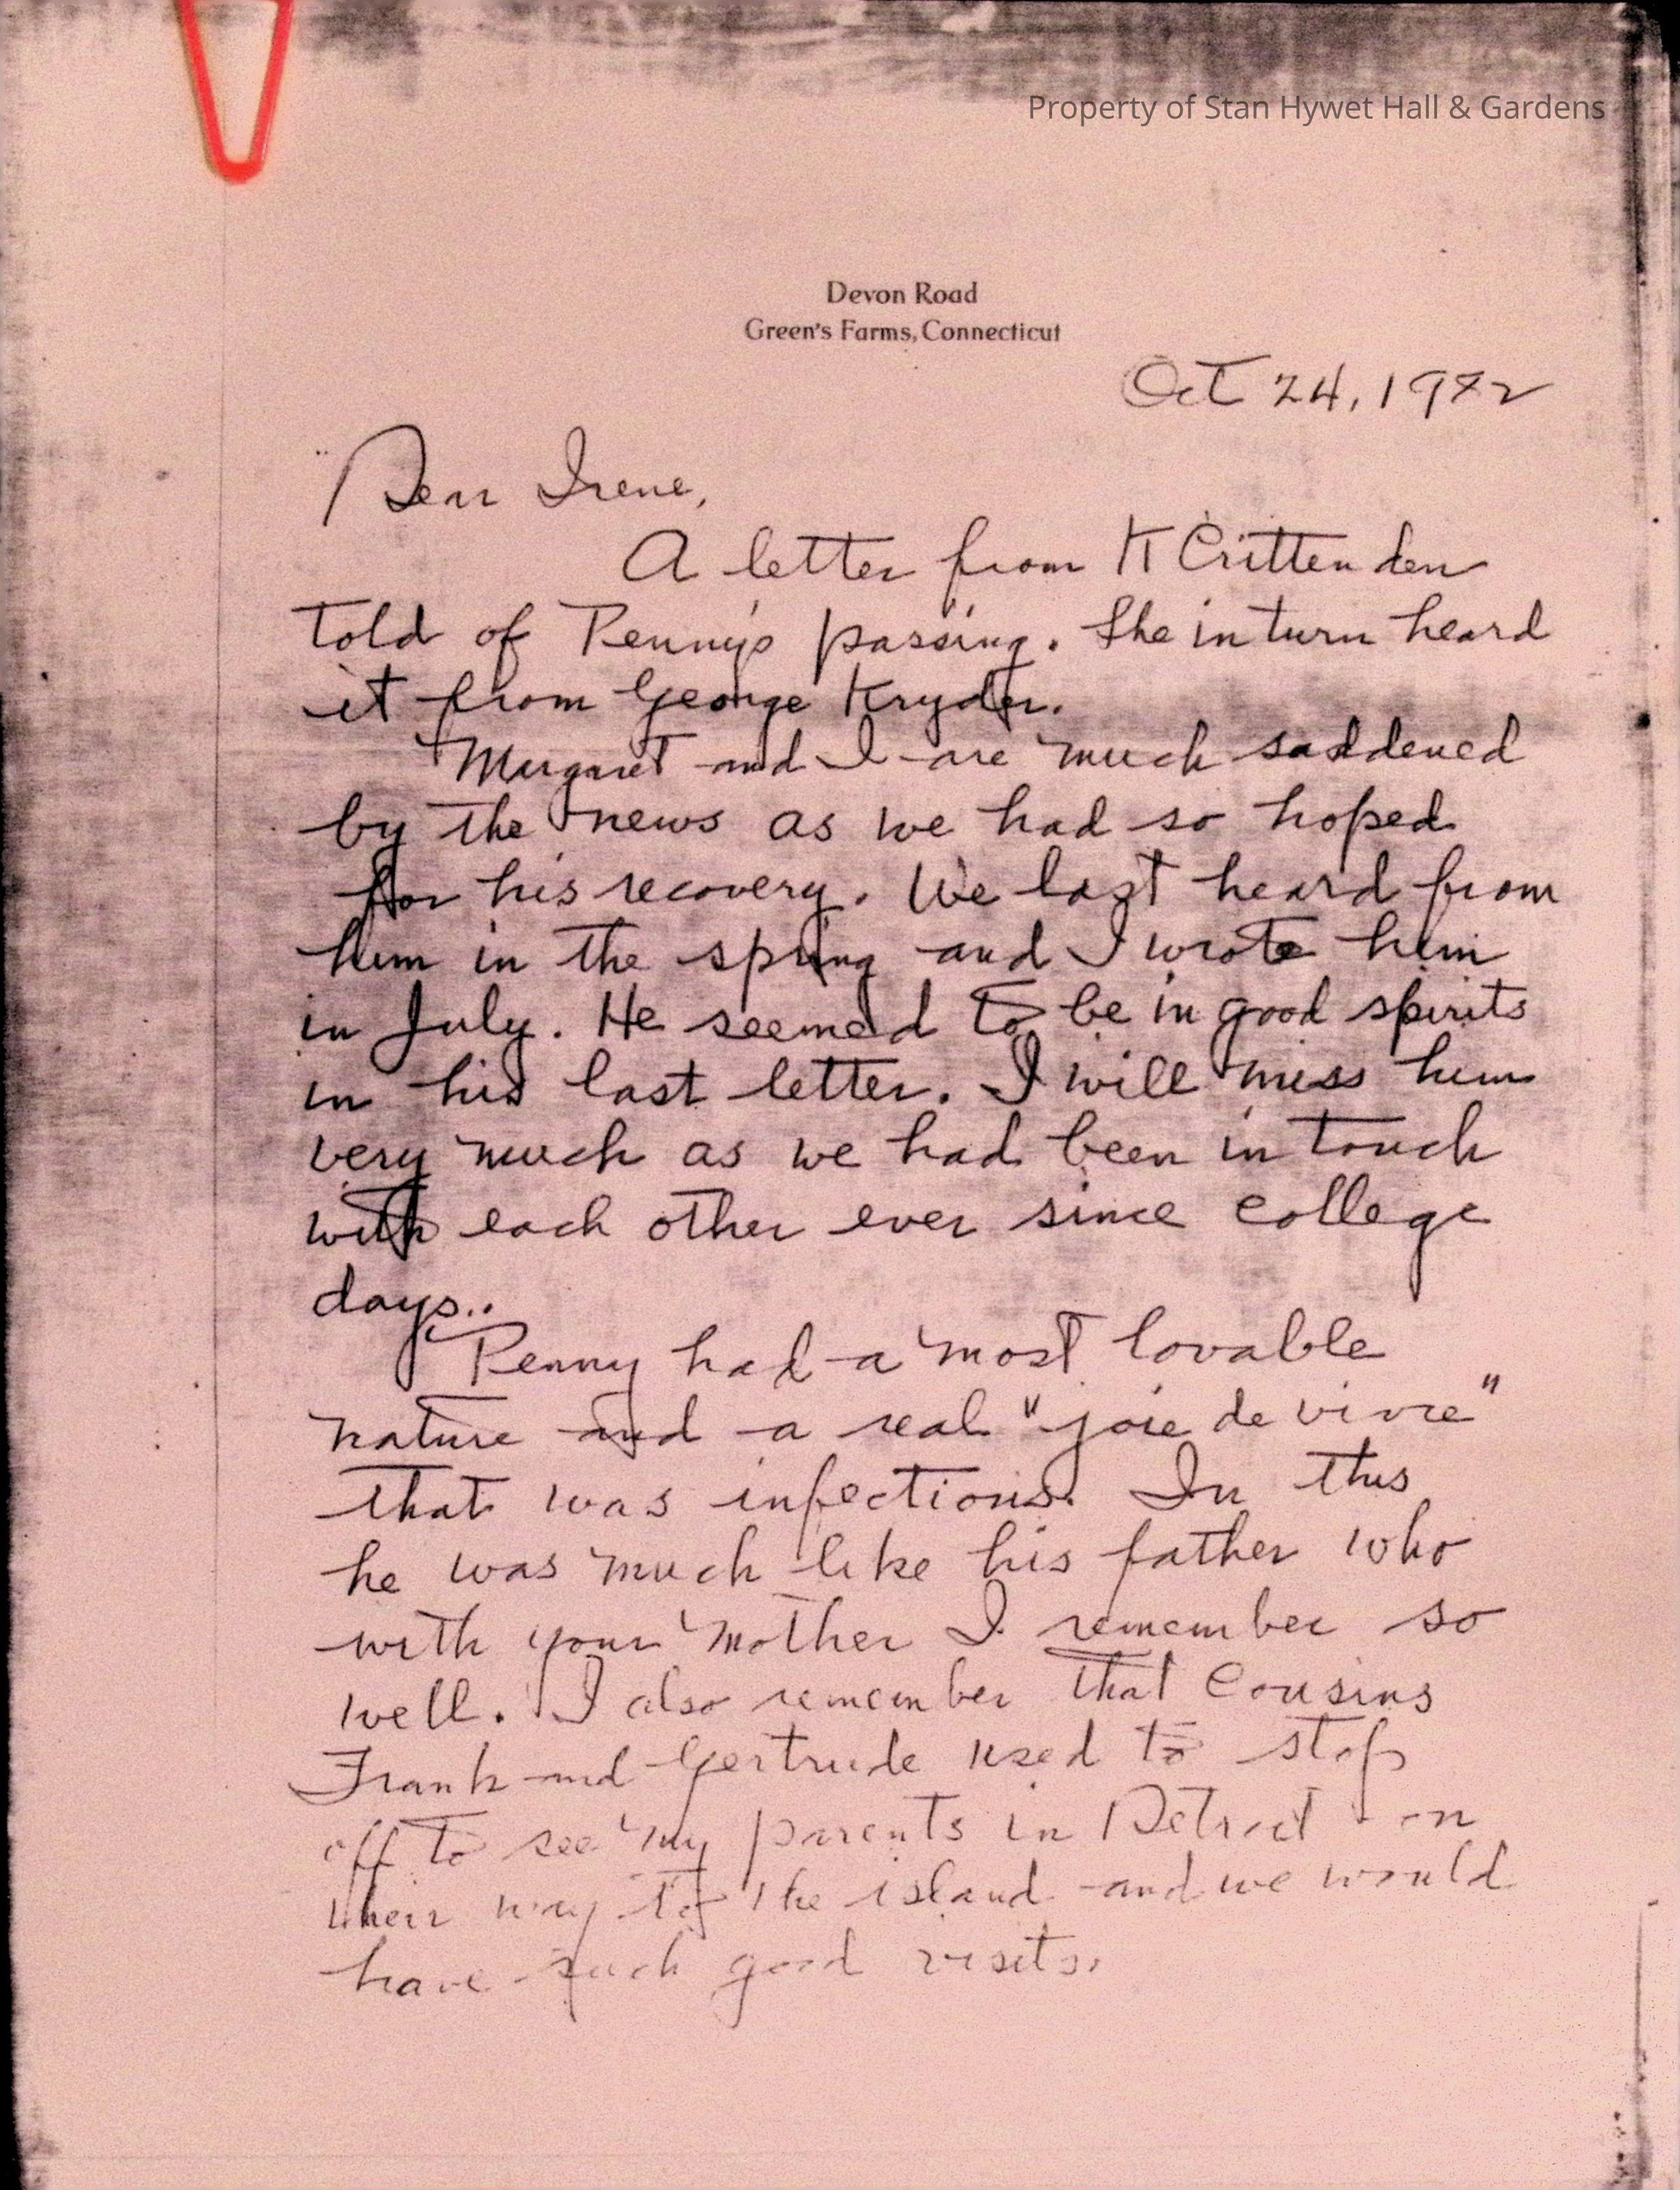 Property of Stan Hywet Hall & Gardens
Devon Road
Green's Farms, Connecticut
Oct 24, 1972
Dear Irene,
A letter from K Crittenden
told of Penny's passing. She in turn heard
it from George Kryder.
Margaret and I are much saddened
by the news as we had so hoped
for his recovery. We last heard from
him in the spring and I wrote him
in July. He seemed to be in good spirits
in his last letter. I will miss him
very much as we had been in touch
with each other ever since college
days..
Penny had a most lovable
nature and a real "joie de vivre"
that was infectious. In this
he was much like his father who
with your mother I remember so
well. I also remember that Cousins
Frank and Gertrude used to stop
off to see my parents in Detroit on
their way to the island and we would
have such good visits.